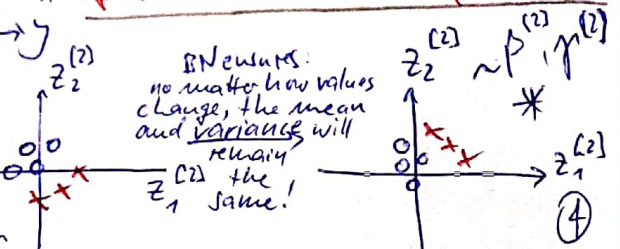 → y
z₂^[2]
BN ensures:
no matter how values
change, the mean
and variance will
remain
the
same!
z₁^[2]
z₂^[2] ~ β^[2], γ^[2]
*
z₁^[2]
4